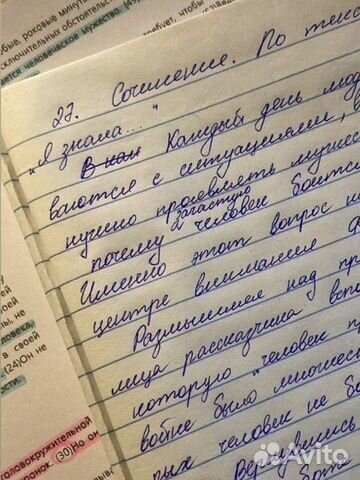 обые, роковые минуты
сключительных обстоятельств
ается человеческое мужество.
требует, чтобы
27. Сочинение. По текс
"Я знала..."
В нам Каждый день люд
ваются с ситуациями,
нужно проявлять муже
почему зачастую человек боится
Именно этот вопрос на
центре внимания
Размышляя над пр
лица рассказчика вспо
которую "человек п
войне было множес
рых человек не бо
вернувшись
боя
ы, не
еловека,
в своей
(24)Он не
ости.
головокружительной
ронок. (30)Но он
Avito